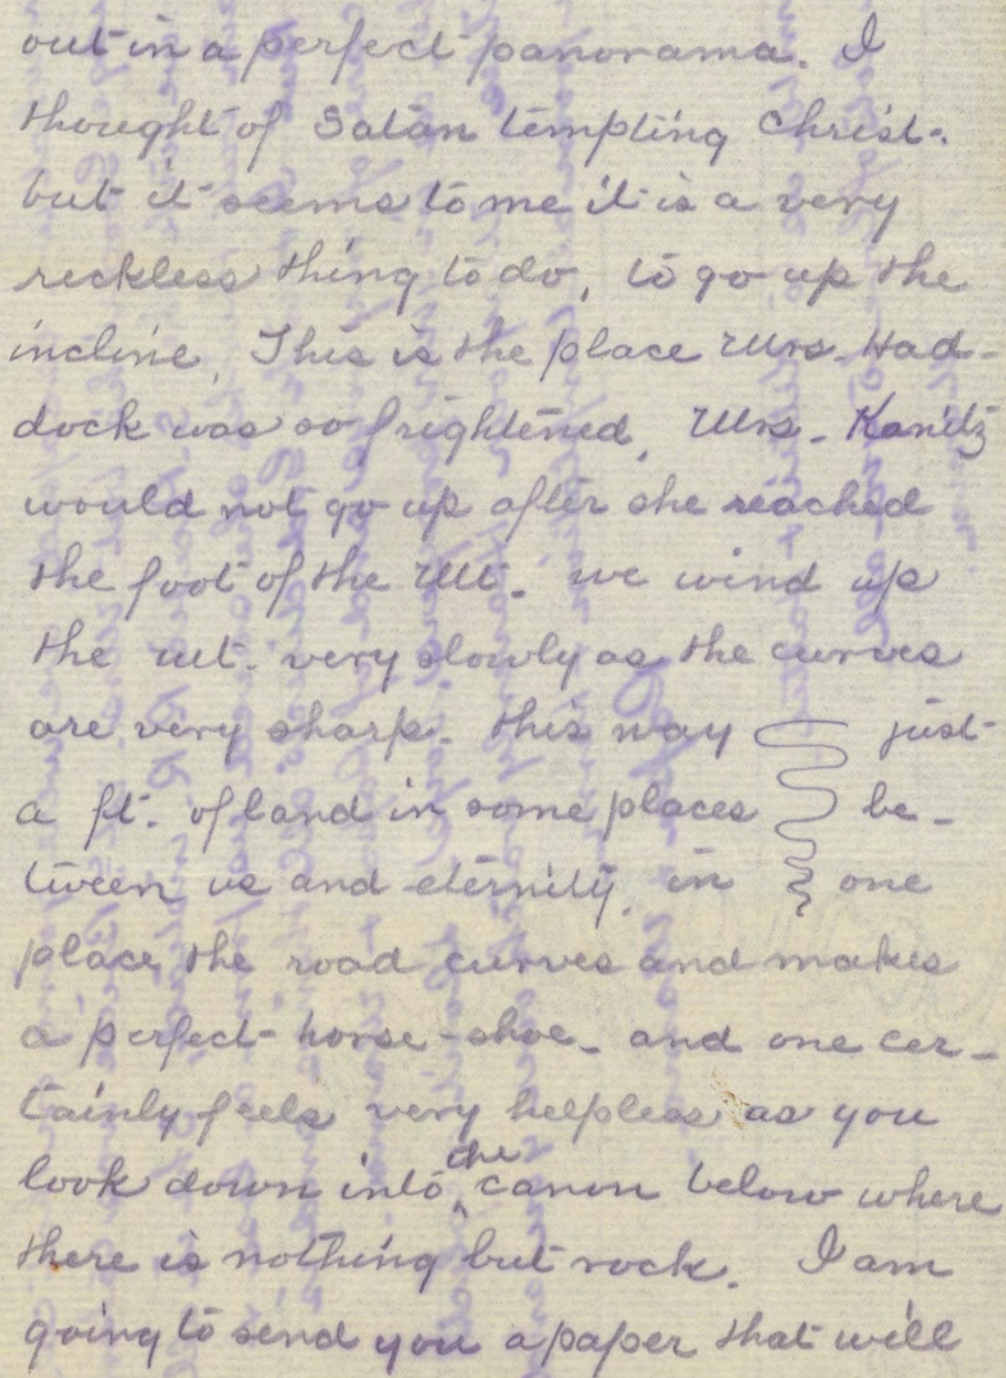 out in a perfect panorama. I
thought of Satan tempting Christ.
but it seems to me it is a very
reckless thing to do, to go up the
incline. This is the place Mrs. Had-
dock was so frightened. Mrs. Kanitz
would not go up after she reached
the foot of the Mt. we wind up
the mt. very slowly as the curves
are very sharp. this way just
a ft. of land in some places be-
tween us and eternity. in one
place the road curves and makes
a perfect horse-shoe- and one cer-
tainly feels very helpless as you
look down into the canon below where
there is nothing but rock. I am
going to send you a paper that will